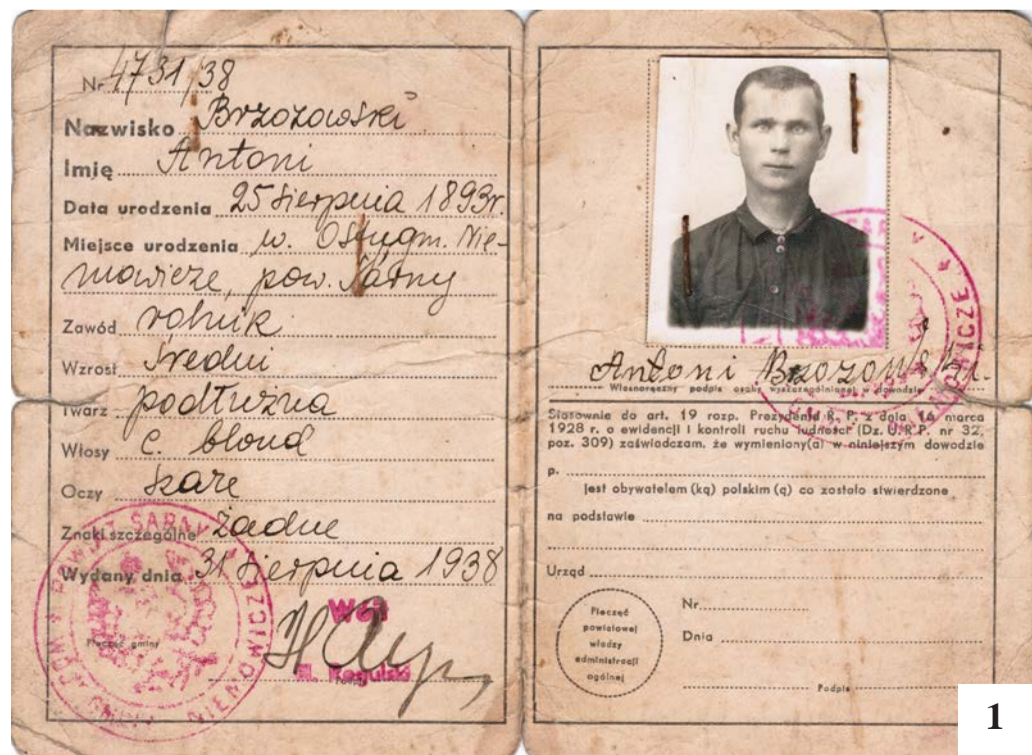 Nr. 4731/38
Nazwisko Brzozowski
Imię Antoni
Data urodzenia 25 sierpnia 1893r.
Miejsce urodzenia w. gm. Nie-
mowicze, pow. Sarny
Zawód rolnik
Wzrost średni
Twarz podłużna
Włosy c. blond
Oczy szare
Znaki szczególne żadne
Wydany dnia 31 sierpnia 1938
Pieczęć gminy
Wójt
Podpis
POWIAT SARNY
GMINY NIEMOWICZE
Antoni Brzozowski
Własnoręczny podpis osoby wyszczególnionej w dowodzie
Stosownie do art. 19 rozp. Prezydenta R. P. z dnia 16 marca
1928 r. o ewidencji i kontroli ruchu ludności (Dz. U. R. P. nr 32,
poz. 309) zaświadczam, że wymieniony(a) w niniejszym dowodzie
p.
jest obywatelem (ką) polskim (ą) co zostało stwierdzone
na podstawie
Urząd
Pieczęć
powiatowej
władzy
administracji
ogólnej
Nr.
Dnia
Podpis
1